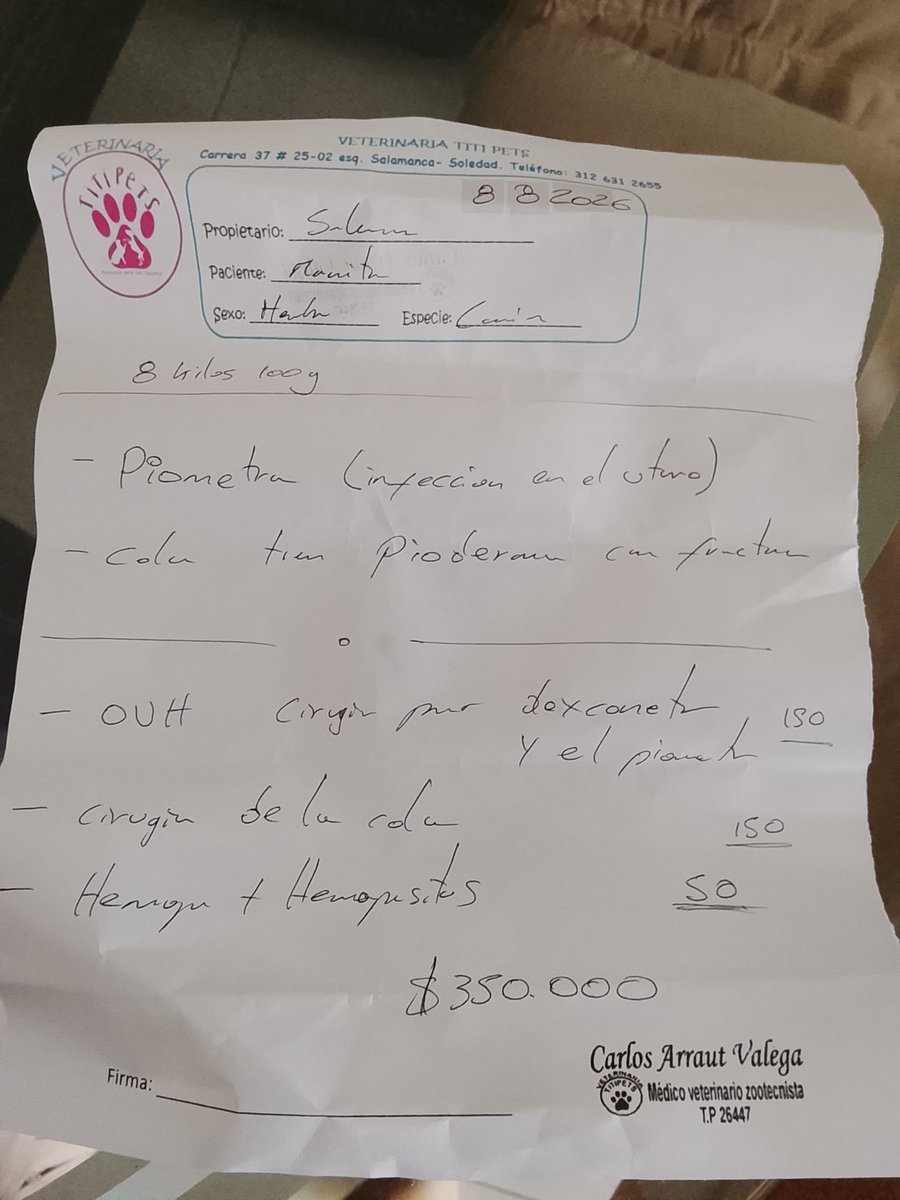 VETERINARIA TITI PETS
Carrera 37 # 25-02 esq. Salamanca- Soledad. Teléfono: 312 631 2655
VETERINARIA
TITIPETS
8 8 2026
Propietario:
Paciente:
Sexo: Especie:
8 kilos 100g
- Piometra (infeccion en el utero)
- cola tien Pioderma con fractura
- OVH Cirugia por
Y el piometra 150
- cirugia de la cola 150
- Hemogr + Hemoparasitos 50
$350.000
Firma:
Carlos Arraut Valega
VETERINARIA
TITIPETS
Médico veterinario zootecnista
T.P 26447